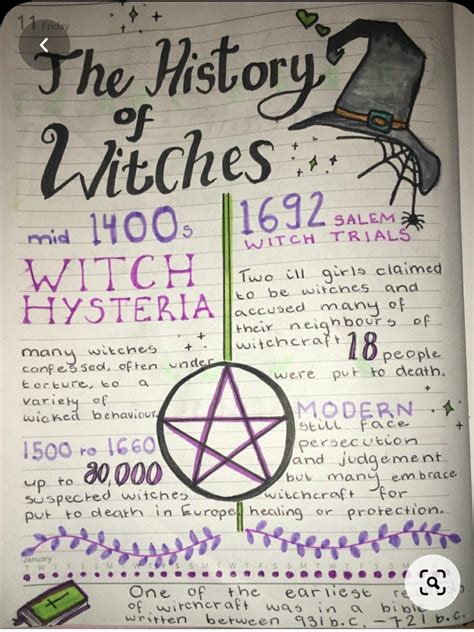 11 Friday
The History
of
Witches
mid 1400s
WITCH
HYSTERIA
many witches
confessed, often under
torture, to a
variety of
wicked behaviour.
1500 to 1660
up to 80,000
suspected witches
put to death in Europe
1692 SALEM
WITCH TRIALS
Two ill girls claimed
to be witches and
accused many of
their neighbours of
witchcraft 18 people
were put to death.
MODERN
still face
persecution
and judgement
but many embrace
witchcraft for
healing or protection.
January
One of the earliest
of witchcraft was in a
written between 931 b.c. – 721 b.c.